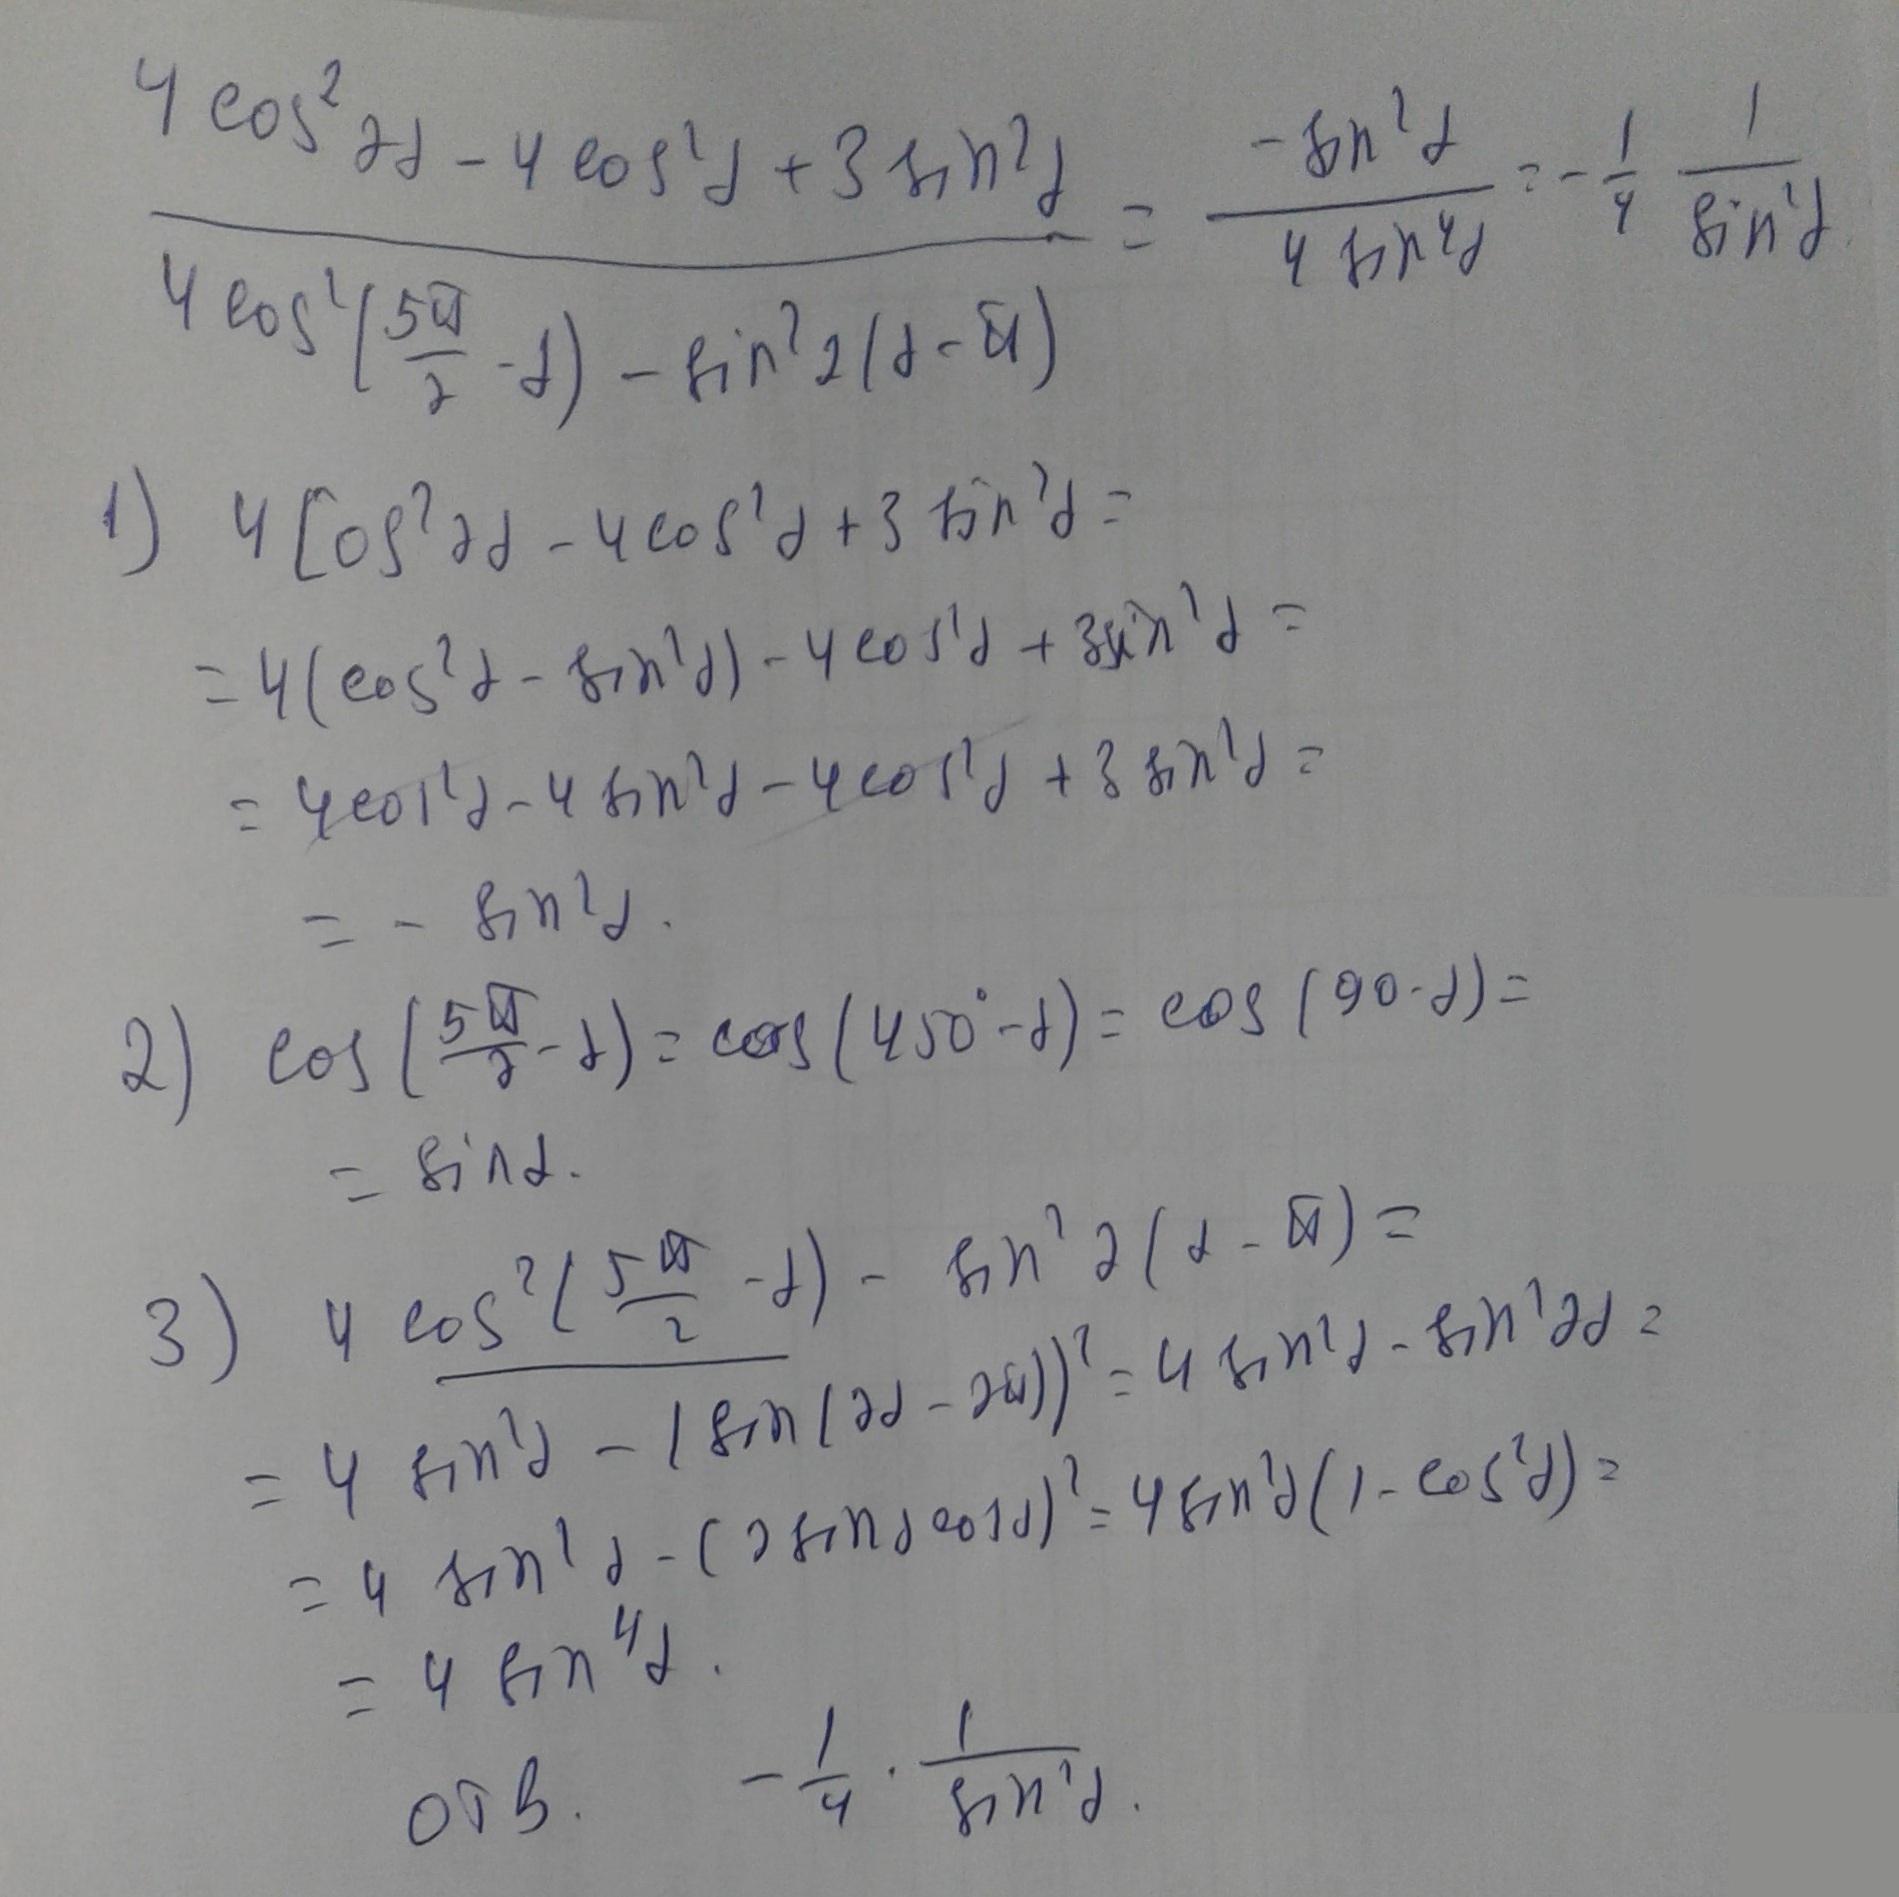 4 cos² 2α - 4 cos²α + 3 sin²α / 4 cos²(5π/2 - α) - sin² 2(α - π) = - sin²α / 4 sin⁴α = - 1/4 1/sin²α.
1) 4 Cos² 2α - 4 cos²α + 3 sin²α =
= 4(cos²α - sin²α) - 4 cos²α + 3 sin²α =
= 4cos²α - 4 sin²α - 4 cos²α + 3 sin²α =
= - sin²α.
2) cos(5π/2 - α) = cos(450° - α) = cos(90 - α) =
= sinα.
3) 4 cos²(5π/2 - α) - sin² 2(α - π) =
= 4 sin²α - (sin(2α - 2π))² = 4 sin²α - sin² 2α =
= 4 sin²α - (2 sinα cosα)² = 4 sin²α(1 - cos²α) =
= 4 sin⁴α.
отв. - 1/4 · 1/sin²α.